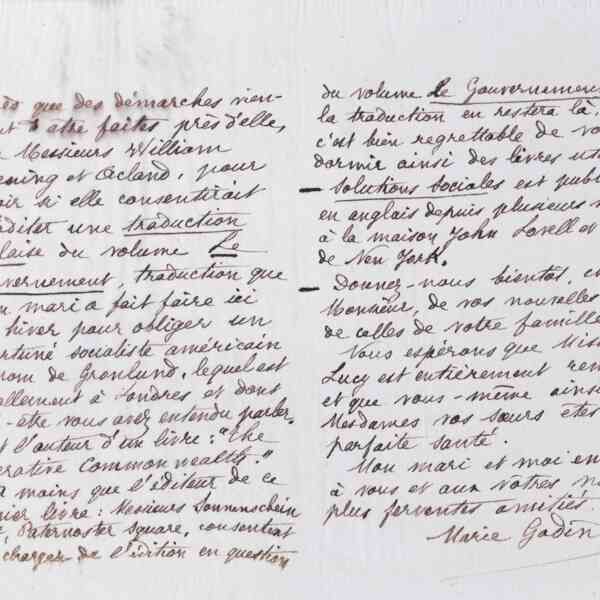 que des démarches vien-
être faites près d'elle,
Messieurs William
et Acland, pour
si elle consentirait
éditer une traduction
du volume Le
Gouvernement, traduction que
mari a fait faire ici
hiver pour obliger un
socialiste américain
nom de Gronlund, lequel est
à Londres et dont
-être vous avez entendu parler.
l'auteur d'un livre: "The
Common wealth."
moins que l'éditeur de ce
livre: Messieurs Sonnenschein
Paternoster Square, consentent
charger de l'édition en question
du volume Le Gouvernement
la traduction en restera là.
c'est bien regrettable de
dormir ainsi des livres
— Solutions Sociales est
en anglais depuis plusieurs
à la maison John Lovell et
de New York.
— Donnez-nous bientôt,
Monsieur, de vos nouvelles
de celles de votre famille
Nous espérons que Miss
Lucy est entièrement
et que vous-même
Mesdames vos sœurs êtes
parfaite santé.
Mon mari et moi
à vous et aux vôtres
plus ferventes amitiés.
Marie Godin